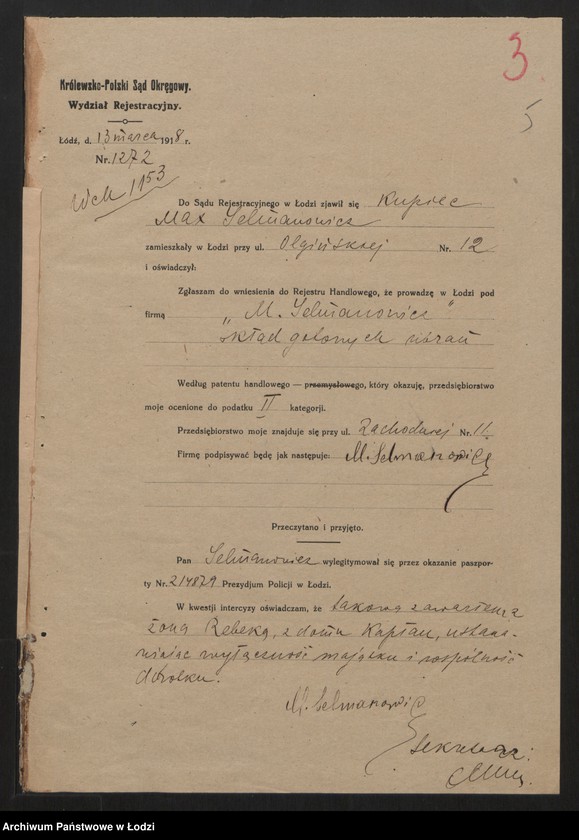 3
5
Królewsko-Polski Sąd Okręgowy.
Wydział Rejestracyjny.
Łódź, d. 13 marca 1918 r.
Nr. 1272
1153
Do Sądu Rejestracyjnego w Łodzi zjawił się Kupiec
Max Selmanowicz
zamieszkały w Łodzi przy ul. Olgińskiej Nr. 12
i oświadczył:
Zgłaszam do wniesienia do Rejestru Handlowego, że prowadzę w Łodzi pod
firmą „M. Selmanowicz"
skład gotowych ubrań
Według patentu handlowego — przemysłowego, który okazuję, przedsiębiorstwo
moje ocenione do podatku II kategorji.
Przedsiębiorstwo moje znajduje się przy ul. Zachodniej Nr. 11.
Firmę podpisywać będę jak następuje: M. Selmanowicz
Przeczytano i przyjęto.
Pan Selmanowicz wylegitymował się przez okazanie paszpor-
ty Nr. 214879 Prezydjum Policji w Łodzi.
W kwestji intercyzy oświadczam, że takową zawarłem z
żoną Rebeką, z domu Kapłan, ustana-
wiając wyłączność majątku i wspólność
dorobku.
M. Selmanowicz
Sekretarz:
Archiwum Państwowe w Łodzi